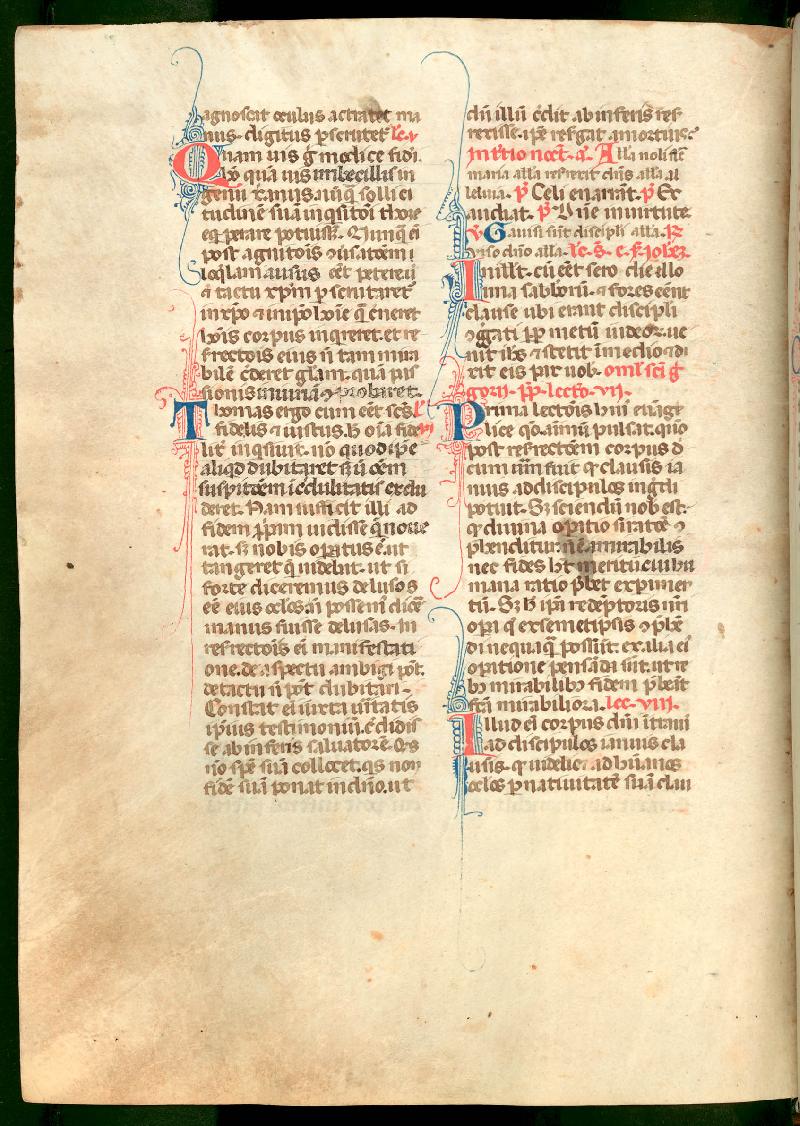 agnoscat oculus actractet ma
nus. digitus ꝑscrutet͛ lc̄. v
Quam uis g̊ modice fidi.
uꝉ quā uis imbecillis in
genii
tudinē suā inq̄sitōi thome
post agnitōis
loq̄lam ausus eēt petere ut
⁊ tactu xp̄m ꝑscrutaret͛
corpus inq̄reret. et re
surrectōis eius nō tam mira
bilē c̄deret gl̄am. quā pas
sionis iniuriā ꝯprobaret.
Thomas ergo cum eēt sc̄s
fidelis ⁊ iustus. h̄ oīa fide
lit͛ inq̄siuit. nō quod ip̄e
aliqd dubitaret sꝫ ut oēm
suspitōem īc̄dulitatis exclu
deret. Nam sufficit illi ad
fidem ꝓp̄am uidisse q̄ noue
rat. sꝫ nobis oꝑatus ē. ut
tangeret q̄ uidebat. ut si
forte diceremus delusos
eē eius oc̄los. nō possem̄ dic̄e
manus fuisse delusas. In
resurrectōis ei manifestati
one. de aspectu ambigi pōt.
de tactu nō pōt dubitari.
Constat ei iuxta ūitatis
ip̄ius testimoniū. c̄didis
se ab inferis saluatorē. Qs
nō spē suā collocet. qs non
fidē suā ponat in dn̄o. ut
dū illū c̄dit ab inferis res
rexisse. ip̄e resurgat a mortuis.
In t͛tio noct. a. Alla noli fle
maria alla resurrexit dn̄s alla. al
leluia. p̄ Celi enarrāt. p̄ Ex
audiat. p̄ Dn̄e in uirtute
v̄ Gauisi sūt discipl̄i alla. R̄
uiso dn̄o alla. lc̄. s. e. s. Joheꝫ.
In illt. cū eēt sero die illo
una sabbtorū. ⁊ fores eēnt
clause ubi erant discipl̄i
ꝯg̊gati ꝓp̄ metū iudeoꝝ. ue
nit ih̄s ⁊ stetit in medio ⁊ di
xit eis pax uob. oml̄. sc̄i g̊
gorii. pp̄. lectō. vii.
Prima lectōis hui euāge
lice qō. aīmū pulsat. quō
post resurrectōem corpus d
cum uerum fuit qd clausis ia
nuis ad discipulos ing̊di
potuit. Sꝫ sciendū nob est.
qd diuina oꝑatio si rat͛ōe ꝯ
p̄henditur. nō ē amirabilis
nec fides hꝫ meritū cui hu
mana ratio p̄bet exꝑimen
tū. Sꝫ h̄ ip̄a redēptoris nr̄i
oꝑa q̄ ex semetip̄sis ꝯp̄hē
di nequaq̄ possūt. ex alia ei
oꝑatione pensāda sūt. ut re
bꝫ mirabilibꝫ fidem p̄beāt
fc̄ā mirabiliora. lec. viii.
Illud ei corpus dn̄i ītrauit
ad discipulos ianuis clau
sis. qd uidelicet ad hūanos
oc̄los ꝑ natiuitatē suā clau